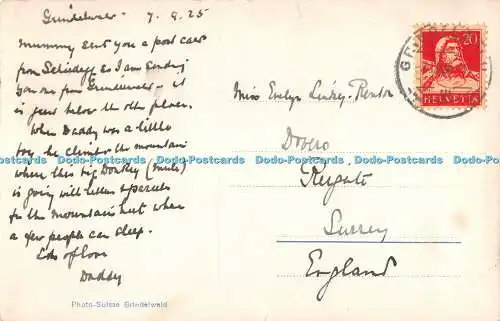 Grindelwald - 7.9.25
Mummy sent you a post card
from Scheidegg so I am sending
you one from Grindelwald - it
is just below the other place.
When Daddy was a little
boy he climbed the mountain
where this big Donkey (mule)
is going with letters & parcels
for the mountain hut where
a few people can sleep.
Lots of love
Daddy
Photo-Suisse Grindelwald
20
HELVETIA
Miss Evelyn
Dovero
Reigate
Surrey
England
Dodo-Postcards Dodo-Postcards Dodo-Postcards Dodo-Postcards Dodo-Postcards